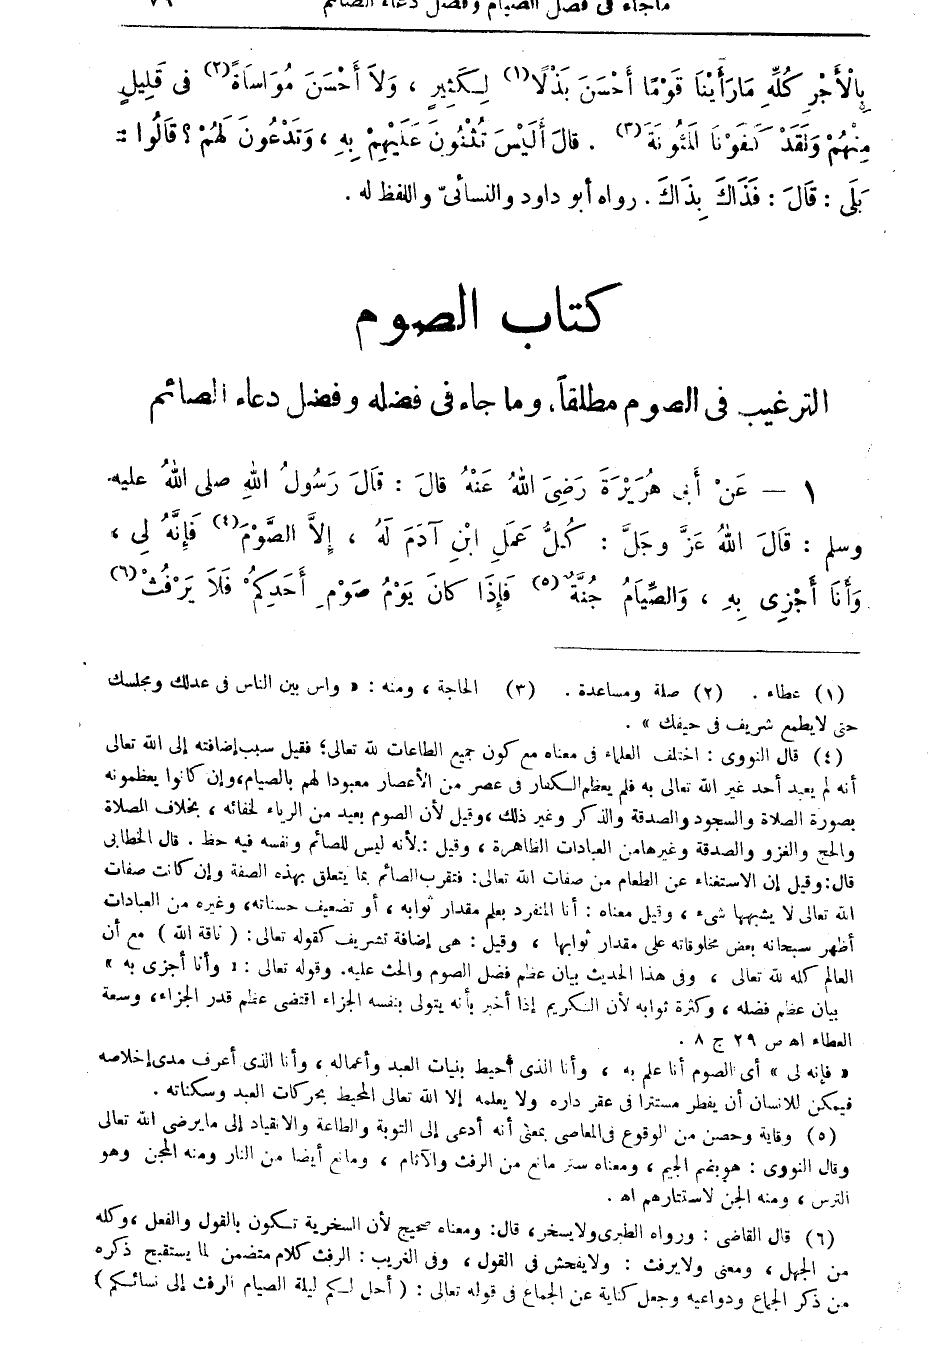 ماجاء فى فضل الصيام وفضل دعاء الصائم ٧٩
بِالْأَجْرِ كُلِّهِ مَارَأَيْنَا قَوْمًا أَحْسَنَ بَذْلًا (١) لِكَثِيرٍ ، وَلاَ أَحْسَنَ مُوَاسَاةً (٢) فى قَلِيلٍ
مِنْهُمْ وَلَقَدْ كَفَوْنَا المَئُونَةَ (٣) . قالَ أَلَيْسَ تُثْنُونَ عَلَيْهِمْ بِهِ ، وَتَدْعُونَ لَهُمْ ؟ قَالُوا :
بَلَى : قَالَ : فَذَاكَ بِذَاكَ . رواه أبو داود والنسائىّ واللفظ له .
كتاب الصوم
الترغيب فى الصوم مطلقاً، وما جاء فى فضله وفضل دعاء الصائم
١ — عَنْ أَبِى هُرَيْرَةَ رَضِىَ اللهُ عَنْهُ قالَ : قَالَ رَسُولُ اللهِ صلى اللهُ عليه
وسلم : قَالَ اللهُ عَزَّ وجَلَّ : كُلُّ عَمَلِ ابْنِ آدَمَ لَهُ ، إِلاَّ الصَّوْمَ (٤) فَإِنَّهُ لِى ،
وَأَنَا أَجْزِى بِهِ ، وَالصِّيَامُ جُنَّةٌ (٥) فَإِذَا كانَ يَوْمُ صَوْمِ أَحَدِكُمْ فَلَا يَرْفُثْ (٦)
(١) عطاء . (٢) صلة ومساعدة . (٣) الحاجة ، ومنه : « واس بين الناس فى عدلك ومجلسك
حتى لايطمع شريف فى حيفك » .
(٤) قال النووى : اختلف العلماء فى معناه مع كون جميع الطاعات لله تعالى؛ فقيل سبب إضافته إلى الله تعالى
أنه لم يعبد أحد غير الله تعالى به فلم يعظم الكفار فى عصر من الأعصار معبودا لهم بالصيام، وإن كانوا يعظمونه
بصورة الصلاة والسجود والصدقة والذكر وغير ذلك ، وقيل لأن الصوم بعيد من الرياء لخفائه ، بخلاف الصلاة
والحج والغزو والصدقة وغيرها من العبادات الظاهرة ، وقيل : لأنه ليس للصائم ونفسه فيه حظ . قال الخطابى
قال: وقيل إن الاستغناء عن الطعام من صفات الله تعالى: فتقرب الصائم بما يتعلق بهذه الصفة وإن كانت صفات
الله تعالى لا يشبهها شىء ، وقيل معناه : أنا المنفرد بعلم مقدار ثوابه ، أو تضعيف حسناته، وغيره من العبادات
أظهر سبحانه بعض مخلوقاته على مقدار ثوابها ، وقيل : هى إضافة تشريف كقوله تعالى: ( ناقة الله ) مع أن
العالم كله لله تعالى ، وفى هذا الحديث بيان عظم فضل الصوم والحث عليه. وقوله تعالى : « وأنا أجزى به »
بيان عظم فضله ، وكثرة ثوابه لأن الكريم إذا أخبر بأنه يتولى بنفسه الجزاء اقتضى عظم قدر الجزاء، وسعة
العطاء اه ص ٢٩ ج ٨ .
« فإنه لى » أى الصوم أنا علم به ، وأنا الذى أحيط بنيات العبد وأعماله ، وأنا الذى أعرف مدى إخلاصه
فيمكن للانسان أن يفطر مستترا فى عقر داره ولا يعلمه إلا الله تعالى المحيط بحركات العبد وسكناته .
(٥) وقاية وحصن من الوقوع فى المعاصى بمعنى أنه أدعى إلى التوبة والطاعة والانقياد إلى مايرضى الله تعالى
وقال النووى : هو بضم الجيم ، ومعناه ستر مانع من الرفث والآثام ، ومانع أيضا من النار ومنه المجن وهو
الترس ، ومنه الجن لاستتارهم اه .
(٦) قال القاضى : ورواه الطبرى ولايسخر، قال: ومعناه صحيح لأن السخرية تكون بالقول والفعل ، وكله
من الجهل ، ومعنى ولايرفث : ولايفحش فى القول ، وفى الغريب : الرفث كلام متضمن لما يستقبح ذكره
من ذكر الجماع ودواعيه وجعل كناية عن الجماع فى قوله تعالى : ( أحل لكم ليلة الصيام الرفث إلى نسائكم )